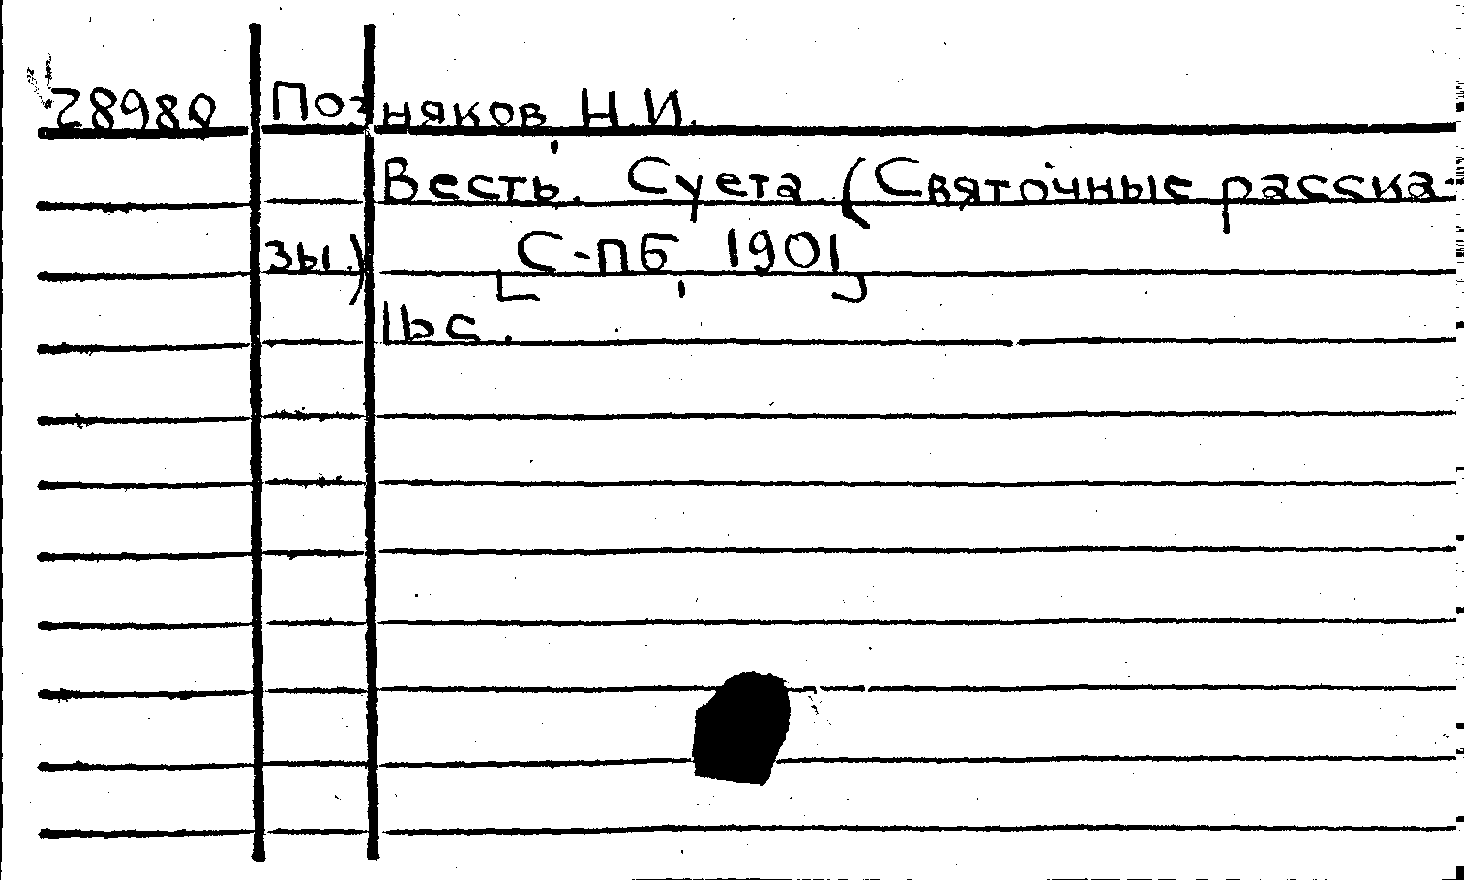 28980 Позняков Н.И.
Весть. Суета. (Святочные расска-
зы.) [С-ПБ, 1901]
16 с.